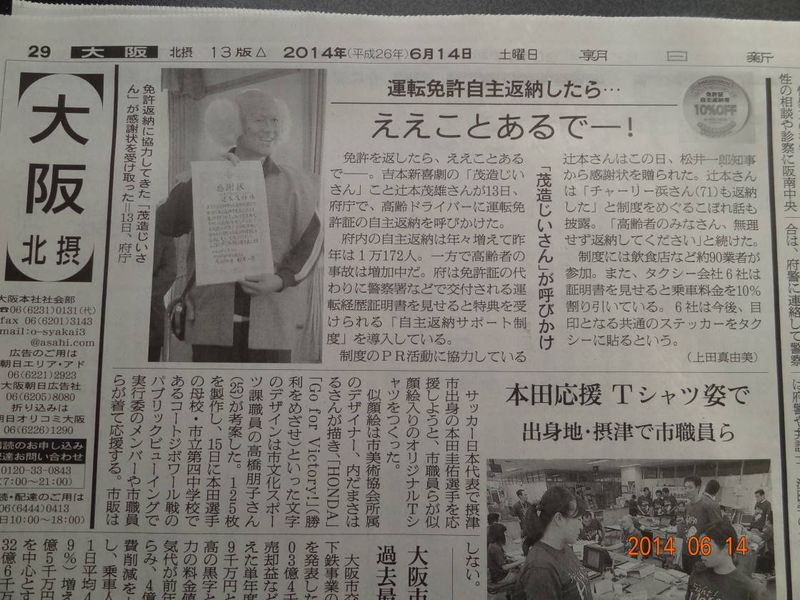 29 大阪 北摂 13版△ 2014年(平成26年)6月14日 土曜日 朝日新
大阪
北摂
大阪本社社会部
☎06(6231)0131(代)
fax 06(6201)3143
mail:o-syakai3
@asahi.com
広告のご用は
朝日エリア・アド
06(6221)2923
大阪朝日広告社
06(6205)8080
折り込みは
朝日オリコミ大阪
06(6226)1290
購読のお申し込み
配達お問い合わせ
0120-33-0843
(7:00〜21:00)
続・配達のご用は
06(6444)0413
(日10:00〜18:00)
免許返納に協力してきた「茂造じいさ
ん」が感謝状を受け取った=13日、府庁
感謝状
運転免許自主返納したら…
ええことあるでー!
免許証
自主返納等
10%OFF
免許を返したら、ええことあ
るで――。吉本新喜劇の「茂造じい
さん」こと辻本茂雄さんが13日、
府庁で、高齢ドライバーに運転免
許証の自主返納を呼びかけた。
府内の自主返納は年々増えて昨
年は1万172人。一方で高齢者の
事故は増加中だ。府は免許証の代
わりに警察署などで交付される運
転経歴証明書を見せると特典を受
けられる「自主返納サポート制
度」を導入している。
制度のPR活動に協力している
「茂造じいさん」が呼びかけ
辻本さんはこの日、松井一郎知事
から感謝状を贈られた。辻本さん
は「チャーリー浜さん(71)も返納
した」と制度をめぐるこぼれ話も
披露。「高齢者のみなさん、無理
せず返納してください」と続けた。
制度には飲食店など約90業者が
参加。また、タクシー会社6社は
証明書を見せると乗車料金を10%
割り引いている。6社は今後、目
印となる共通のステッカーをタク
シーに貼るという。
(上田真由美)
性の相談や診察に阪南中央
合は、府警に連絡して警察
本田応援 Tシャツ姿で
出身地・摂津で市職員ら
サッカー日本代表で摂津
市出身の本田圭佑選手を応
援しようと、市職員らが似
顔絵入りのオリジナルTシ
ャツをつくった。
似顔絵は市美術協会所属
のデザイナー、内だまさは
るさんが描き、「HONDA」
「Go for Victory!(勝
利をめざせ)といった文字
のデザインは市文化スポー
ツ課職員の高橋朋子さん
(25)が考案した。125枚
を製作し、15日に本田選手
の母校・市立第四中学校で
あるコートジボワール戦の
パブリックビューイングで
実行委のメンバーや市職員
らが着て応援する。市販は
しない。
大阪市
過去最
大阪市交
下鉄事業の
を発表した
03億4千
売却益など
えた単年度
9千万円と
高の黒字と
力の料金
気代が前年
らみ、4億
費削減を
し、乗車人
1日平均4
9%)増え
億5千万円
を中心とす
32億6千万
2014 06 14